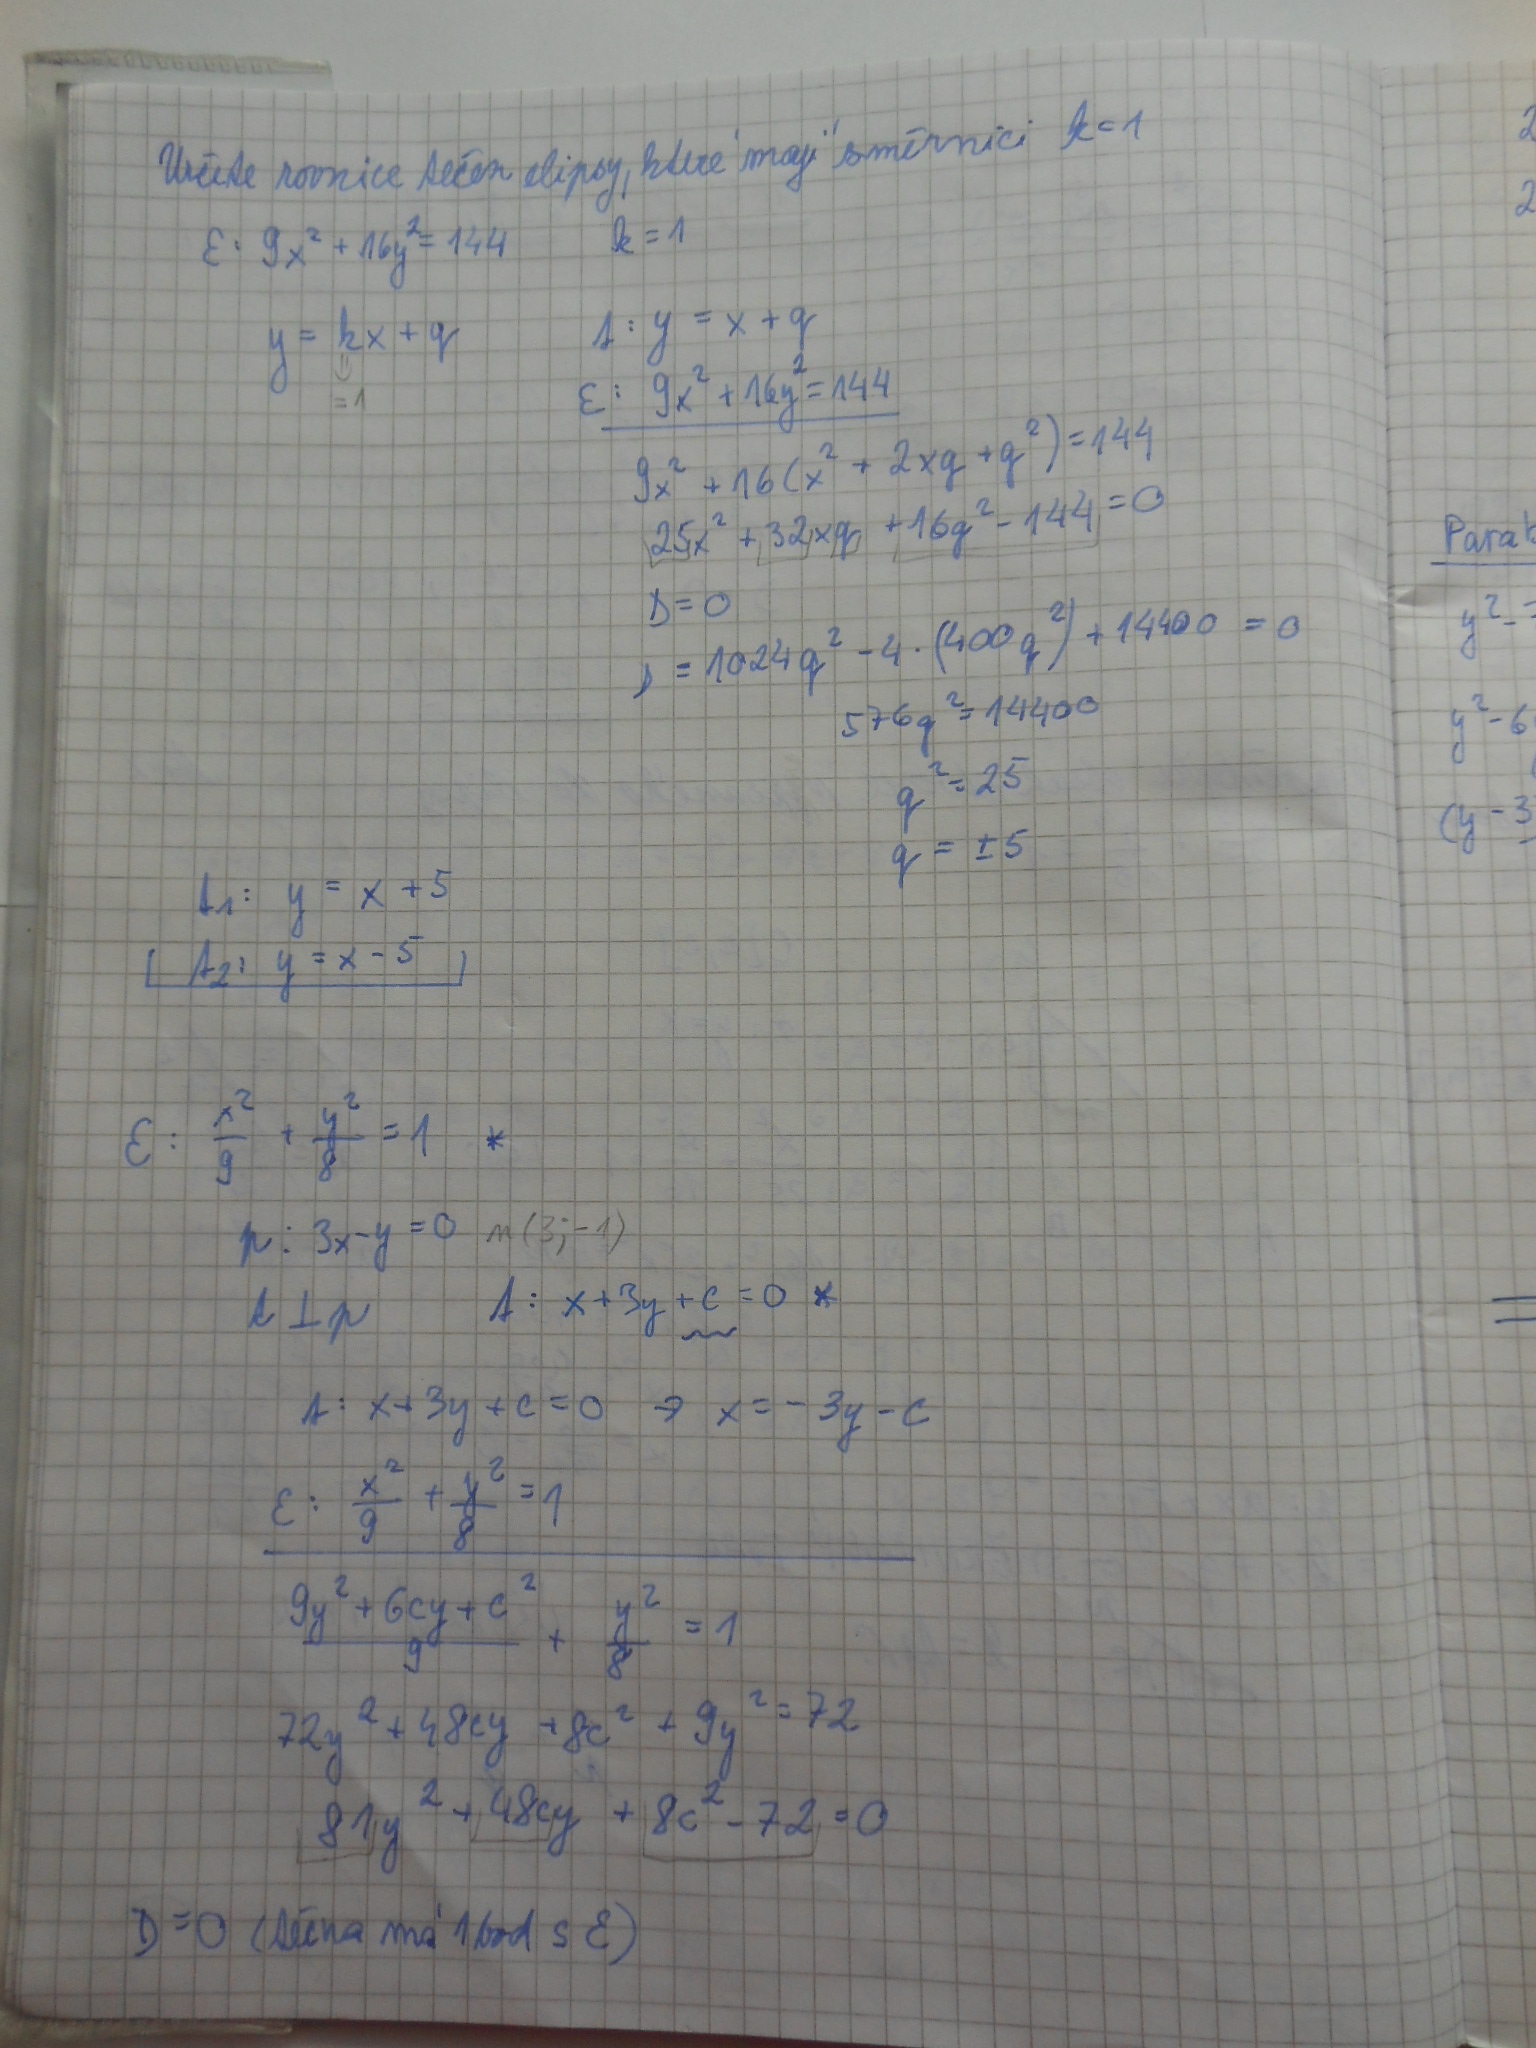 Určete rovnice tečen elipsy, které mají směrnici k=1
ε: 9x² + 16y² = 144 k = 1
y = kx + q t: y = x + q
= 1 ε: 9x² + 16y² = 144
9x² + 16(x² + 2xq + q²) = 144
25x² + 32xq + 16q² - 144 = 0
D = 0
D = 1024q² - 4·(400q²) + 14400 = 0
576q² = 14400
q² = 25
q = ±5
t₁: y = x + 5
t₂: y = x - 5
ε: x²/9 + y²/8 = 1 *
p: 3x - y = 0 n(3;-1)
t ⊥ p t: x + 3y + c = 0 *
t: x + 3y + c = 0 → x = -3y - c
ε: x²/9 + y²/8 = 1
(9y² + 6cy + c²)/9 + y²/8 = 1
72y² + 48cy + 8c² + 9y² = 72
81y² + 48cy + 8c² - 72 = 0
D = 0 (tečna má 1 bod s ε)
2
2
Parab
y² - =
y² - 6
(y - 3